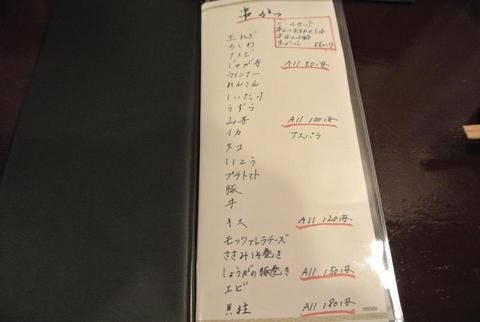 串かつ
ビールセット
生ビール 880円
玉ねぎ
ちくわ
ナスビ
じゃが芋 All 80円
ウインナー
れんこん
しいたけ
うずら
山芋 All 100円
イカ アスパラ
タコ
プチトマト
豚
牛
キス All 120円
モッツァレラチーズ
ささみ 巻き
しょうがの豚巻き All 150円
エビ
貝柱 All 180円